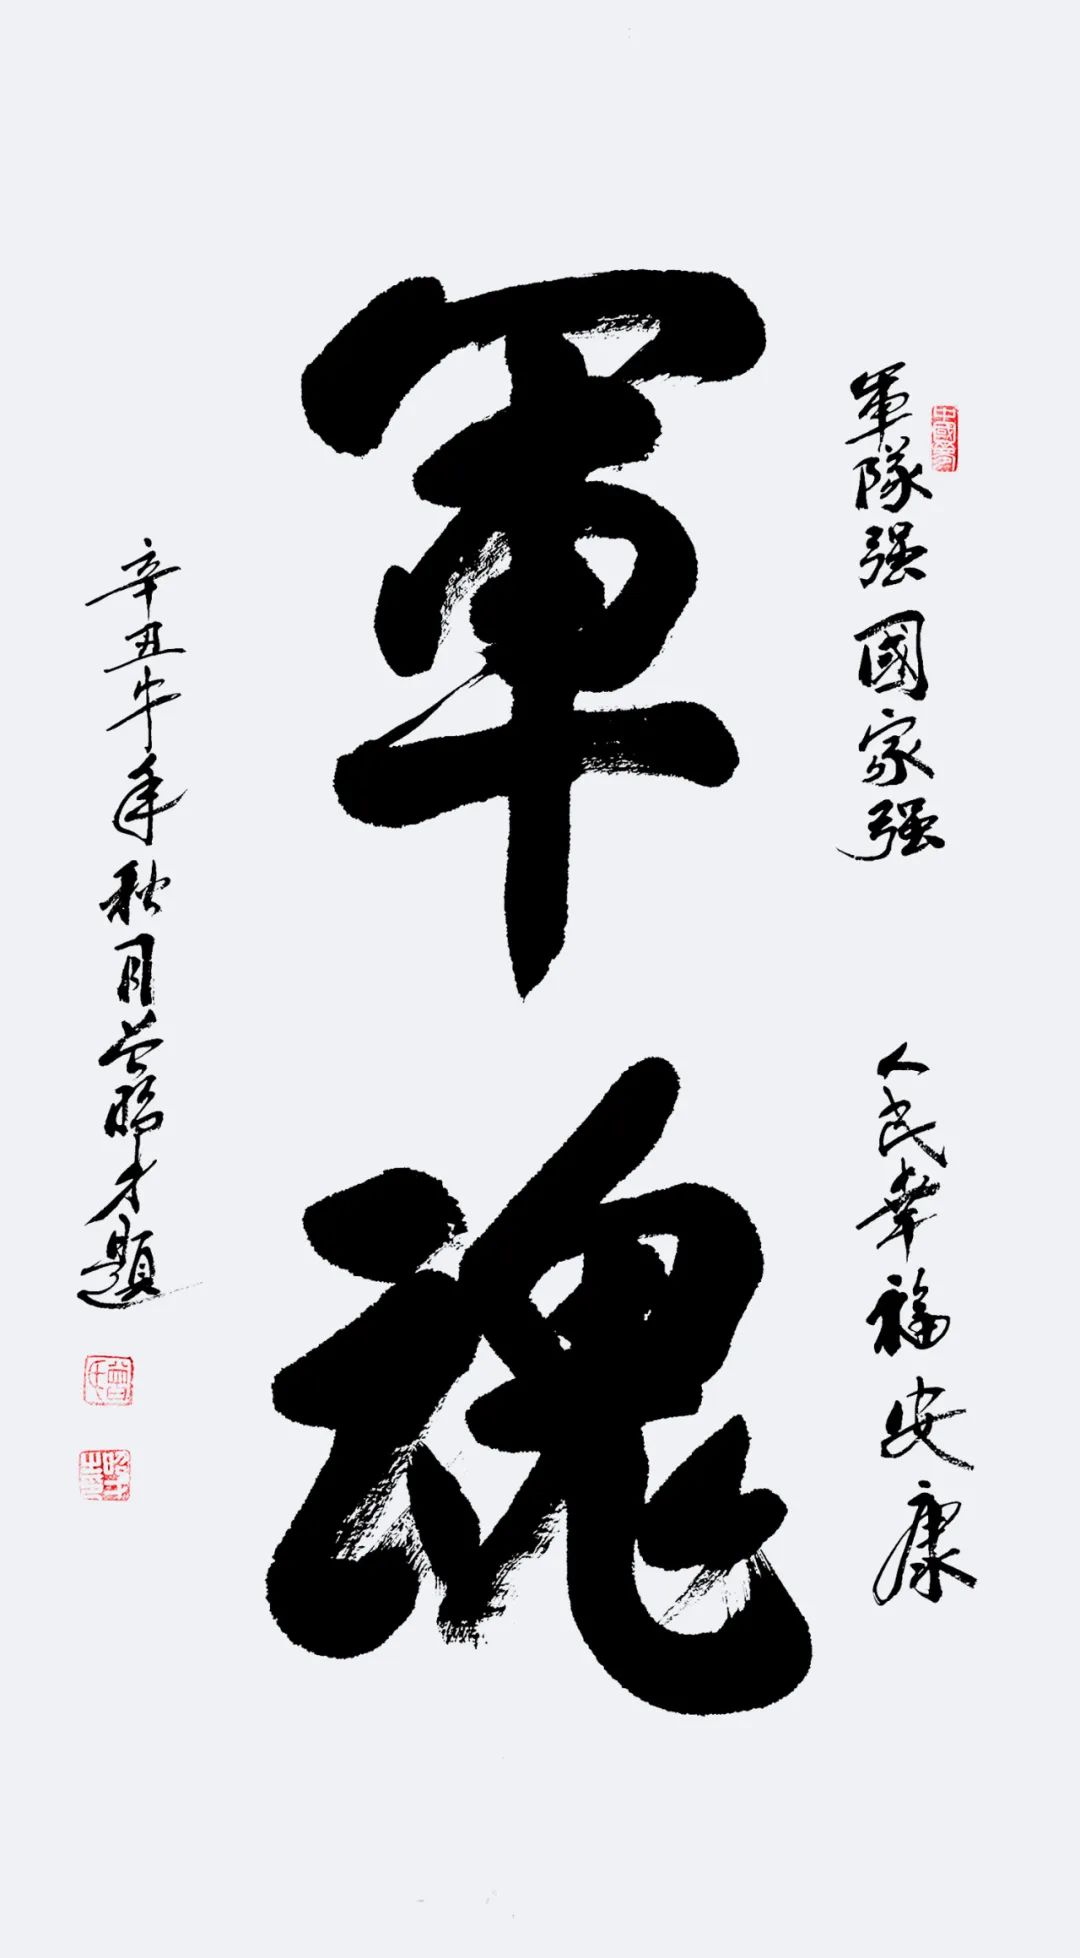 中國夢
軍隊强國家强 人民幸福安康
軍魂
辛丑牛年秋月曾昭才題